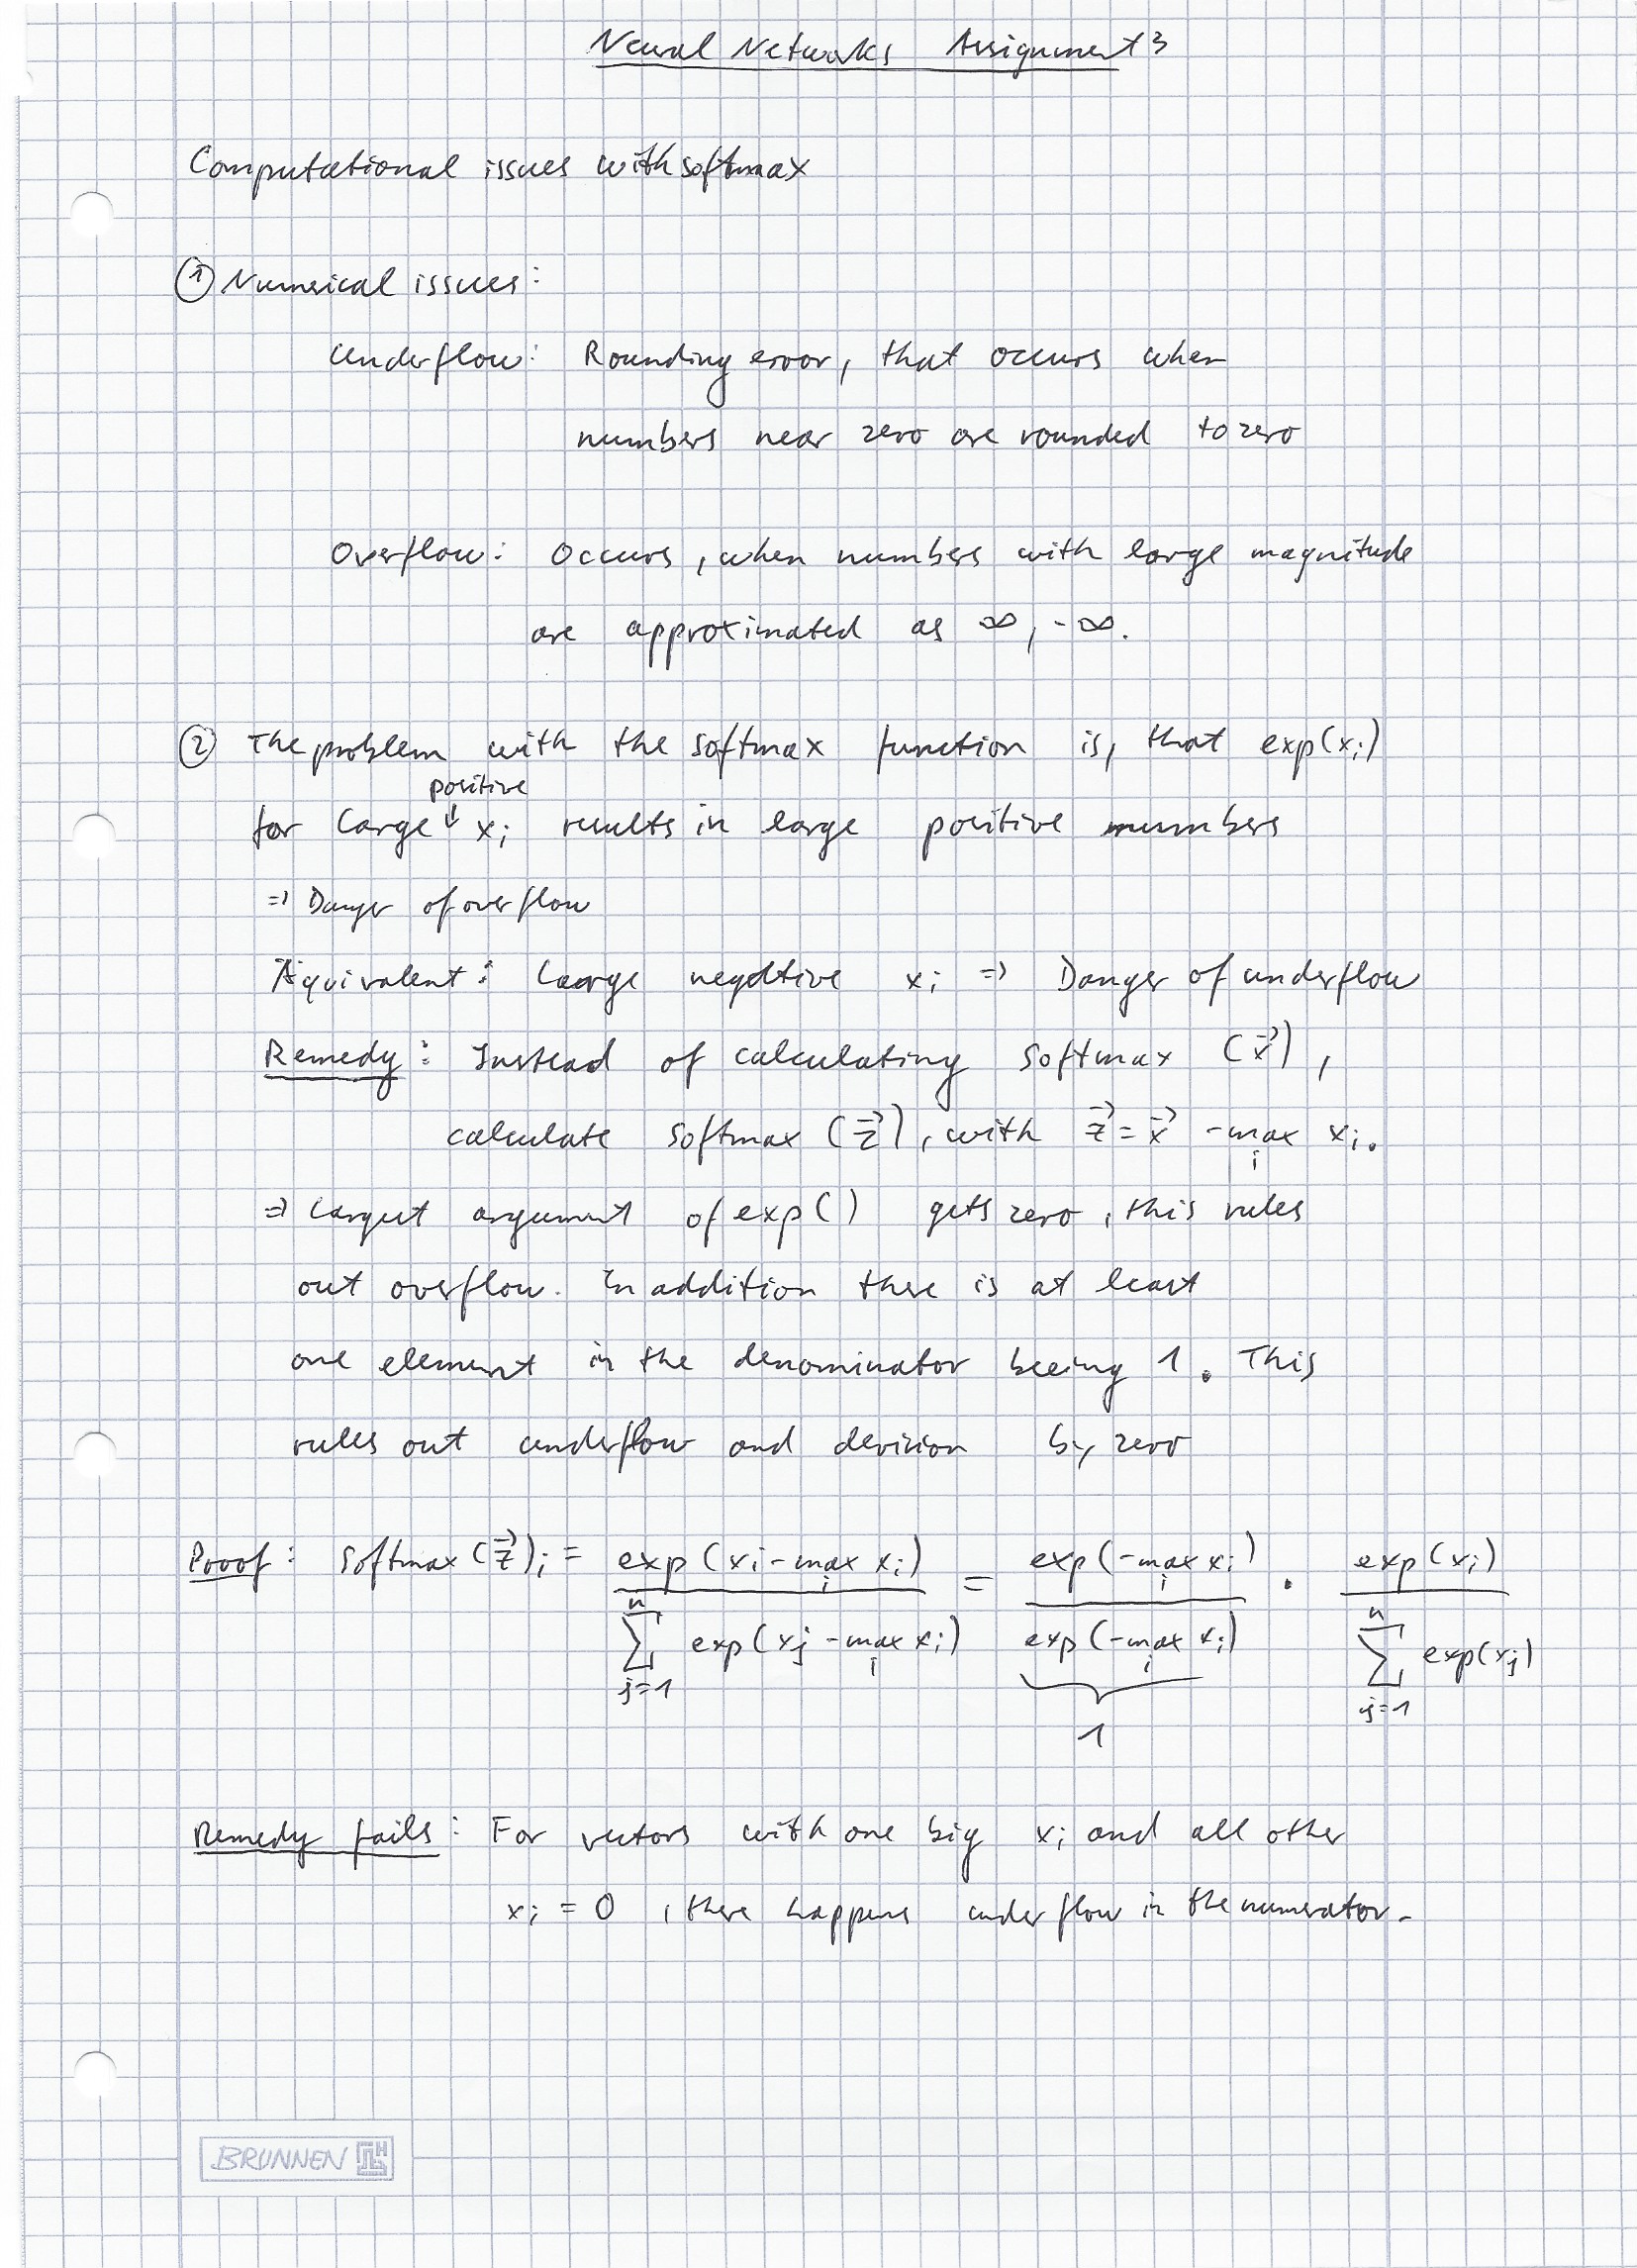 Neural Networks Assignment 3
Computational issues with softmax
① Numerical issues:
Underflow: Rounding error, that occurs when
numbers near zero are rounded to zero
Overflow: Occurs, when numbers with large magnitude
are approximated as ∞, -∞.
② The problem with the softmax function is, that exp(xi)
positive
for large ↓ xi results in large positive numbers
=> Danger of overflow
Äquivalent: Large negative xi => Danger of underflow
Remedy: Instead of calculating softmax (x⃗),
calculate softmax (z⃗), with z⃗ = x⃗ - max_i xi.
=> Largest argument of exp() gets zero, this rules
out overflow. In addition there is at least
one element in the denominator beeing 1. This
rules out underflow and devision by zero
Proof: Softmax(z⃗)i = exp(xi - max_i xi) / ∑_{j=1}^{n} exp(xj - max_i xi) = exp(-max_i xi) / exp(-max_i xi) · exp(xi) / ∑_{j=1}^{n} exp(xj)
1
Remedy fails: For vectors with one big xi and all other
xi = 0, there happens underflow in the numerator.
BRUNNEN